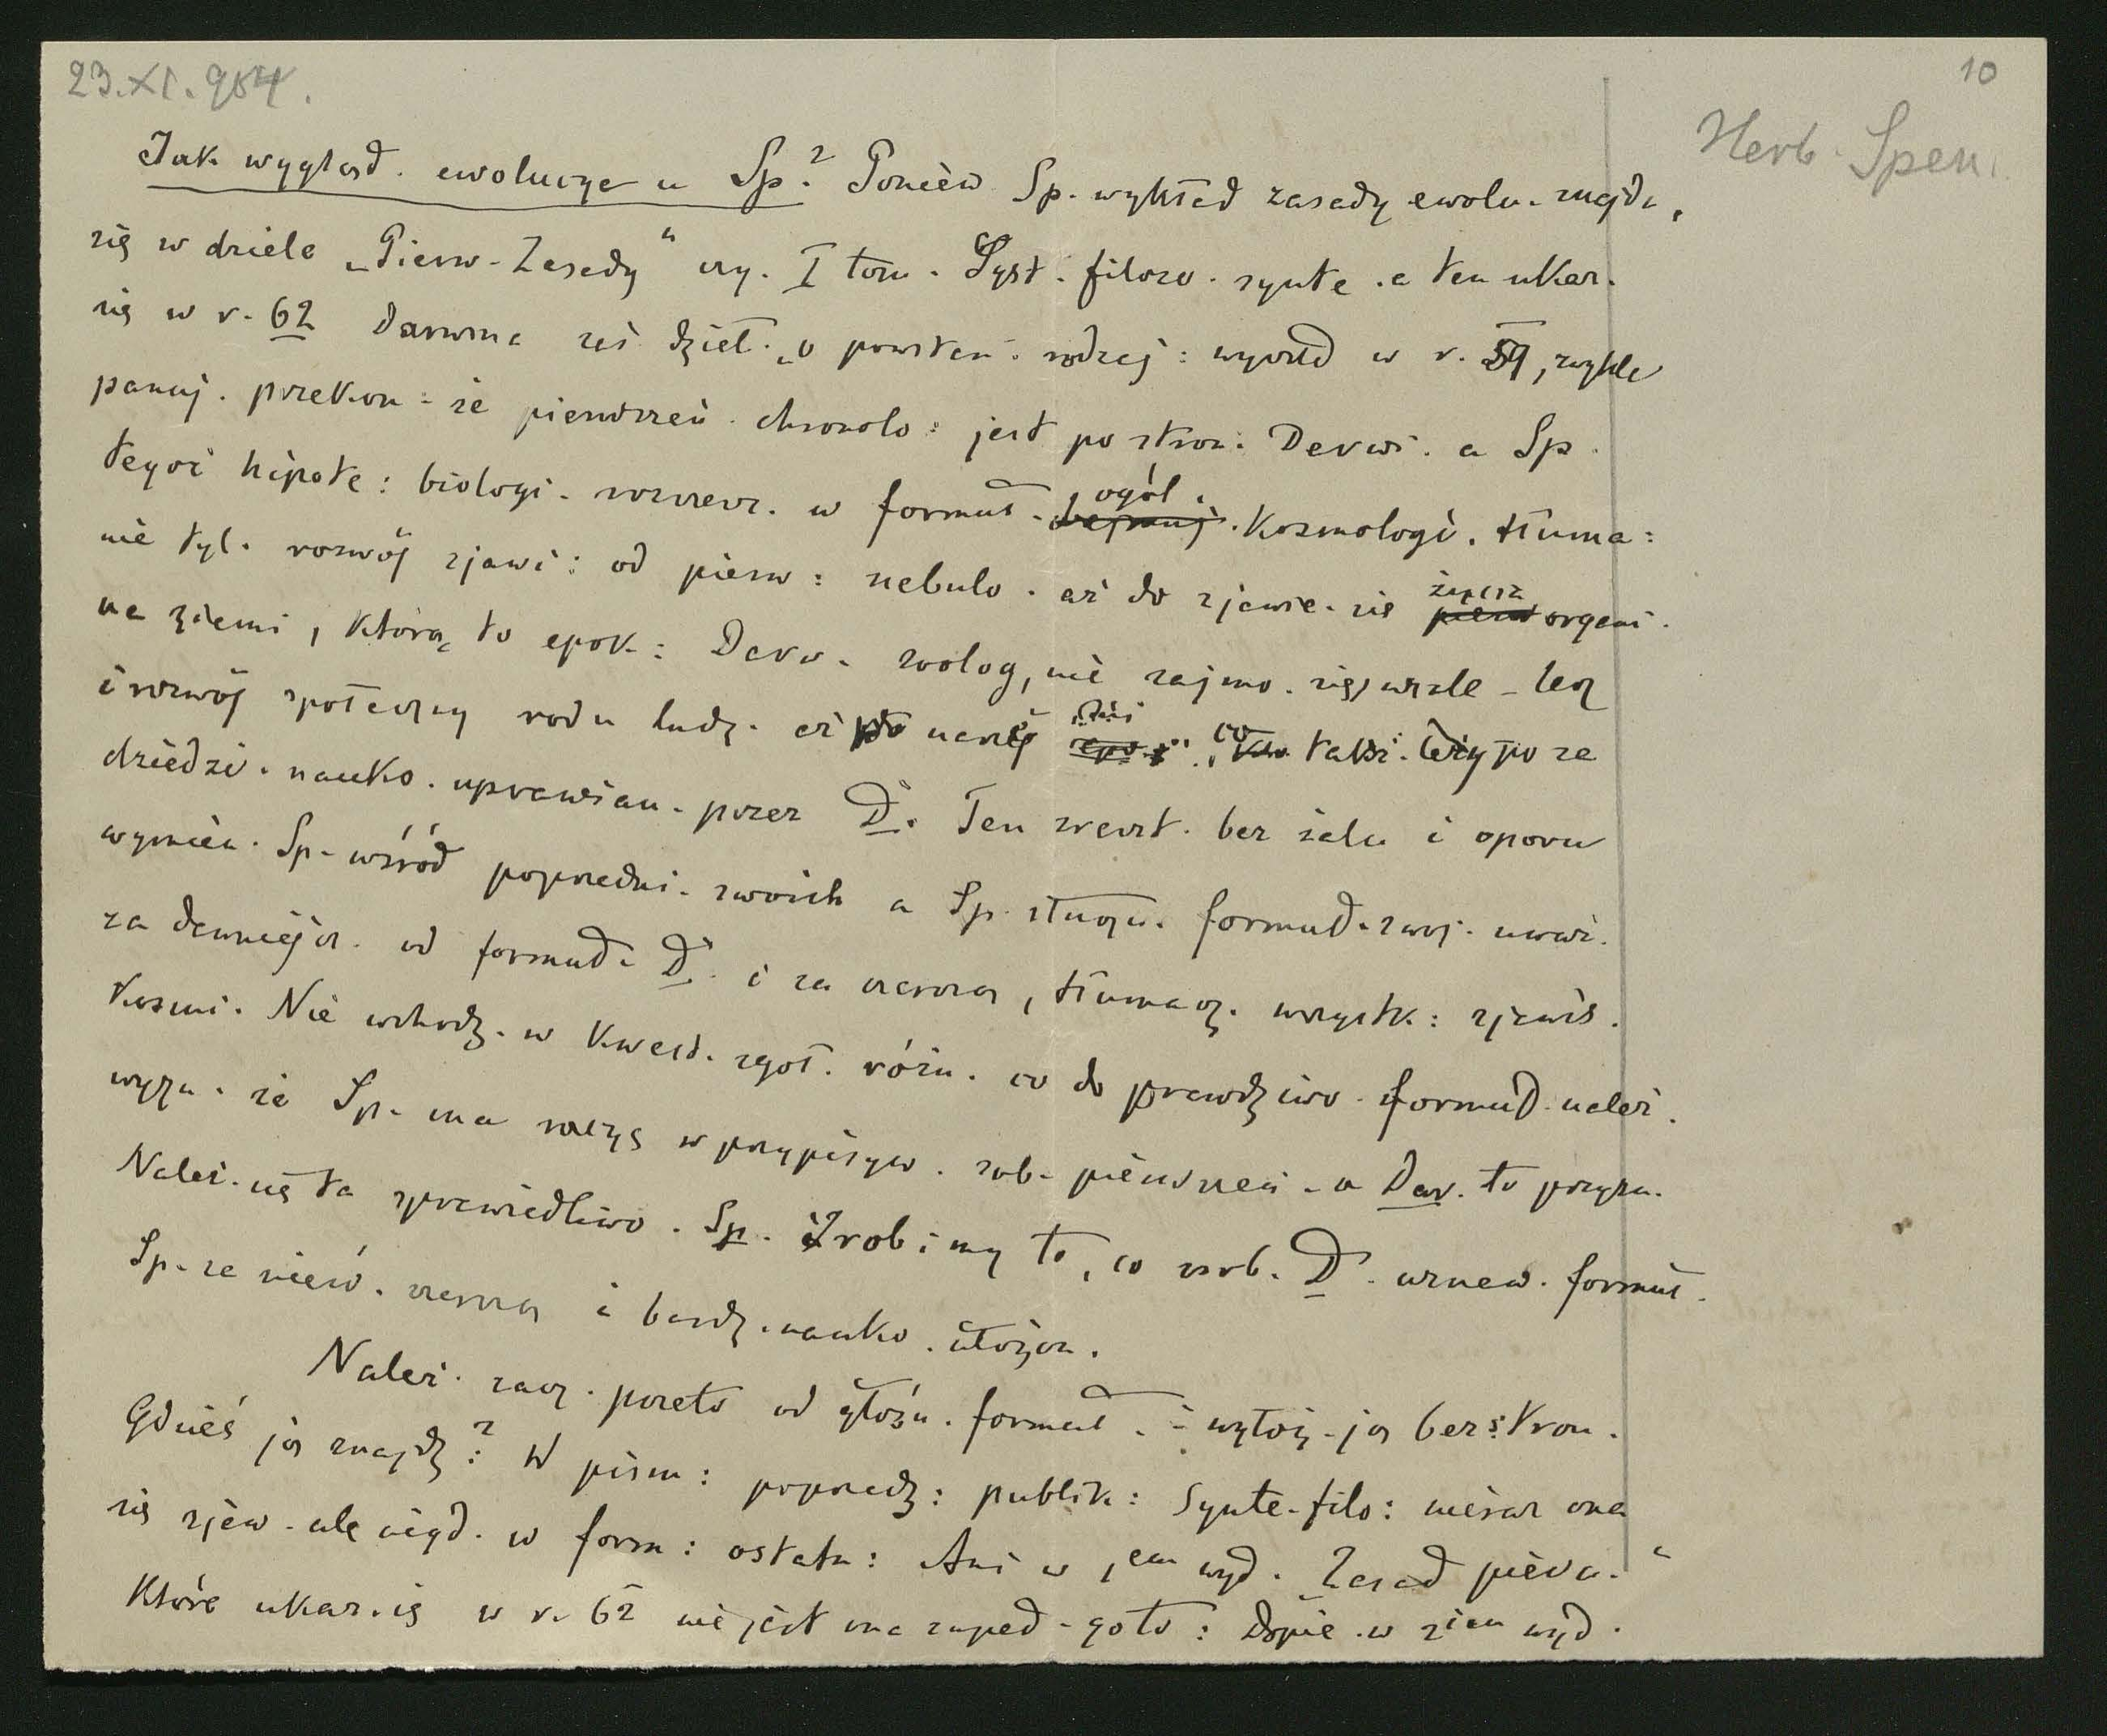 23.XI.904.
10
Herb. Spen.
Jak wygląd. ewolucye u Sp.? Ponień Sp. wykład zasady ewolu. znajdu,
się w dziele „Pierw. Zasady“ czy. I tom. Syst. filozo. synte. a ten ukaz.
się w r. 62 Darwina zaś dzieł. „o powstań. rodzaj: wyszed w r. 59, zwykle
panuj. przekon: że pierwszeń. chronolo: jest po stron: Darwi. a Sp.
tegoż hipote: biologi. rozszerz. w formuł. ogól. kosmologi. tłuma:
nie tyl. rozwój zjawi: od pierw: nebulo. aż do zjawie. się życia organi.
na ziemi, którą to epok: Darw. zoolog, nie zajmo. się, wcale – lecz
i rozwój społeczny rodu ludz. aż do naszej , co także. leży po za
dziedzi. nauko. uprawian. przez D. Ten zreszt. bez żalu i oporu
wymien. Sp. wśród poprzedni. swoich a Sp. słuszn. formuł. swoj. uważ.
za dawniejsz. od formuł. D. i za szerszą, tłumacz. wszystk: zjawis.
kosmi. Nie wchodz. w kwest. zgoł. różn. co do prawdziwo. formuł. należ.
wyzn. że Sp. ma racyę w przypisyw. sob. pierwszeń. a Dar. to przyzn.
Należ. się ta sprawiedliwo. Sp. Zrobimy to, co zrob. D. uznaw. formuł.
Sp. za szerszą i bardz. nauko. ułożon.
Należ. zacz. przeto od głośn. formuł. i wyłoż. ją bezstron.
Gdzieś ją znajdz? W pism: poprzedz: publik: Synte. filo: nieraz ona
się zjaw. ale nigd. w form: ostatn: Ani w 1em wyd. Zasad pierw.“
które ukaz. się w r. 62 nie jest ona zupeł. goto: Dopie. w 2iem wyd.